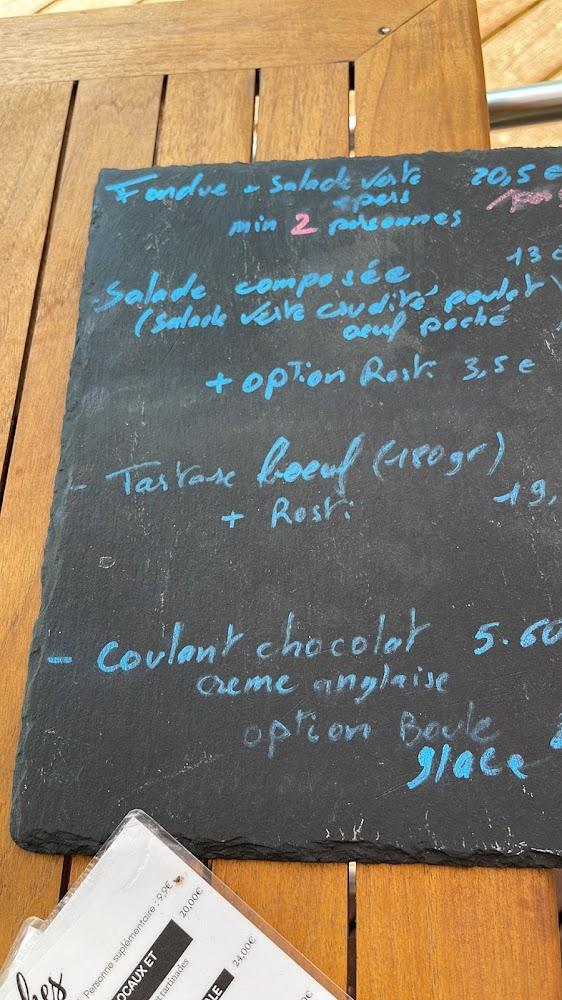 Fondue - Salade verte 20,5 €
1 pers
min 2 personnes
- Salade composée 13 €
(Salade verte crudité poulet
oeuf poché
+ option Rosti 3,5 €
- Tartare boeuf (180gr)
+ Rosti 19,
- Coulant chocolat 5.60
creme anglaise
option Boule
glace
Personne suplémentaire : 9,9€
20,00€
OCAUX ET
tartinades
24,00€